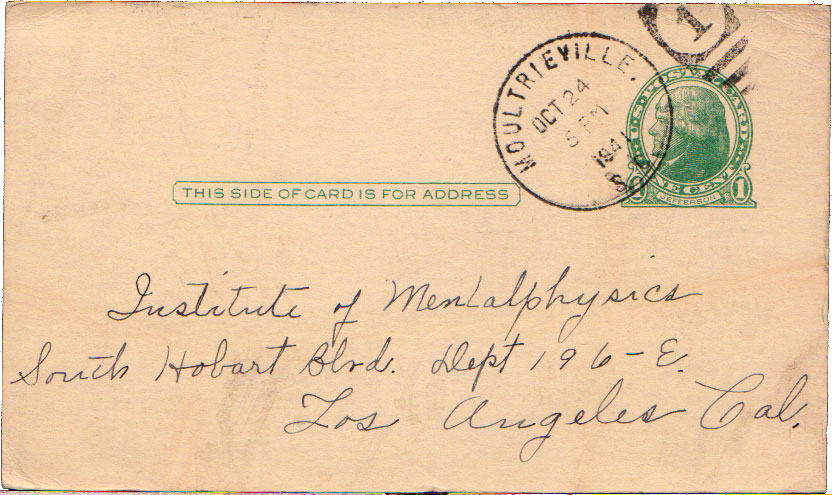 1
MOULTRIEVILLE,
OCT 24
5 PM
1941
S.C.
U.S. POSTAL CARD
ONE CENT
1
JEFFERSON
THIS SIDE OF CARD IS FOR ADDRESS
Institute of Mentalphysics
South Hobart Blvd. Dept 196-E.
Los Angeles Cal.